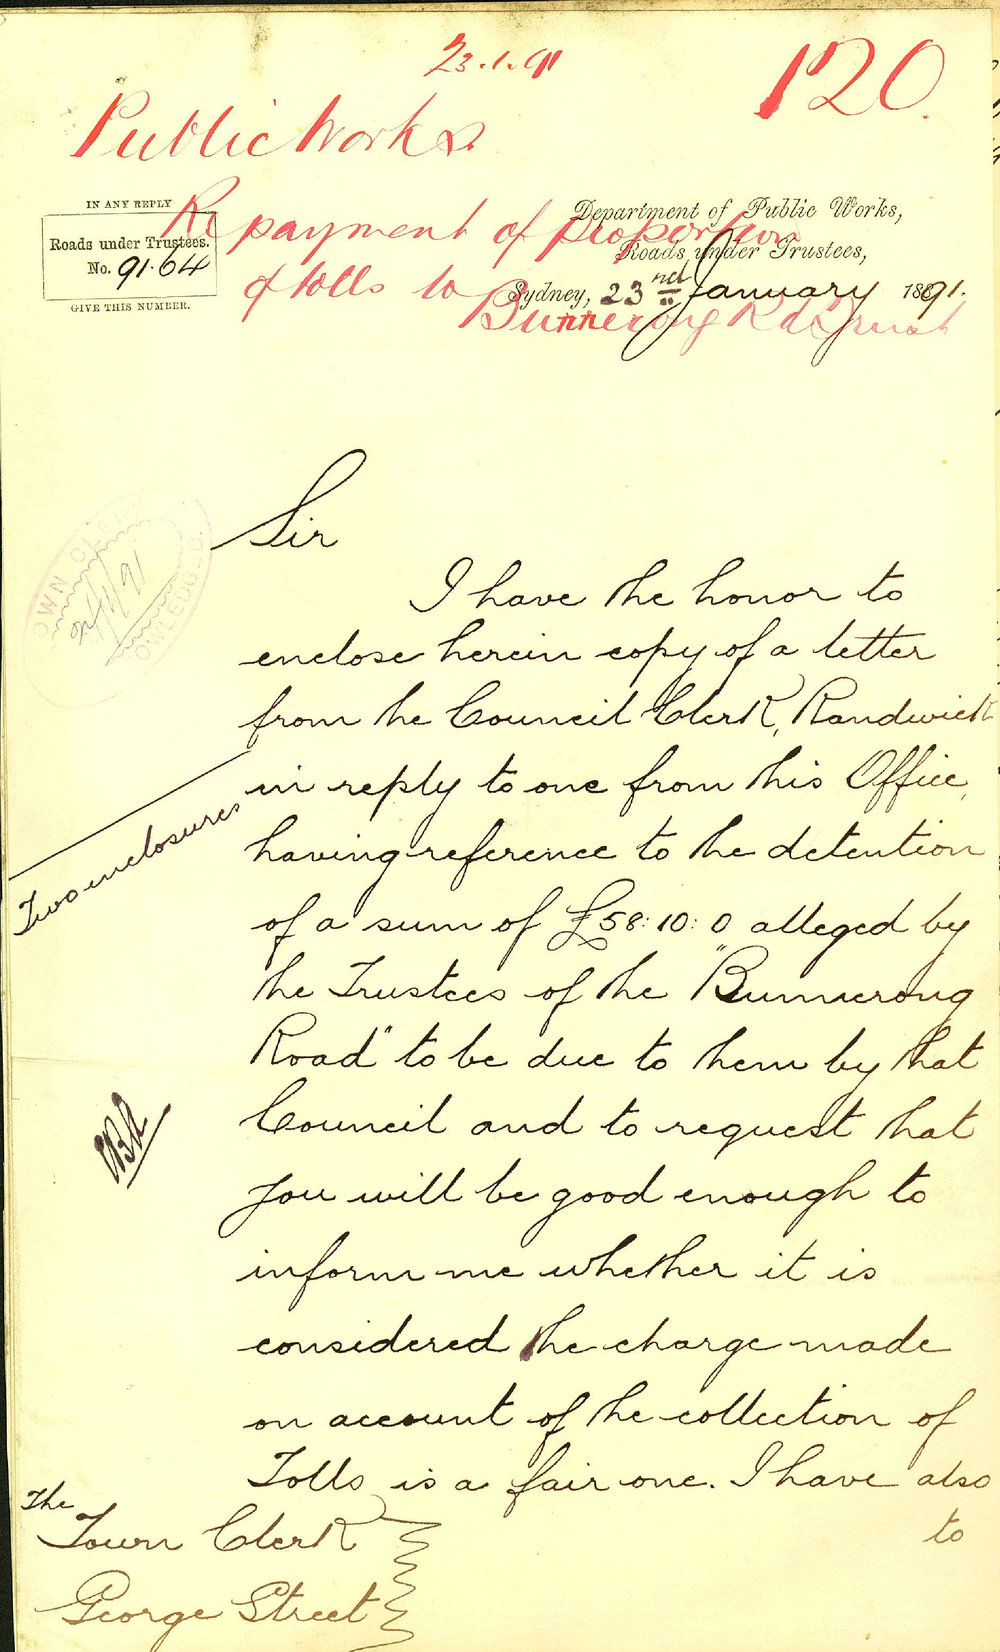 23.1.91
120.
Public Works
IN ANY REPLY
Roads under Trustees.
No. 91.64
GIVE THIS NUMBER.
Repayment of proportion
of tolls to
Bunnerong Rd Trust
Department of Public Works,
Roads under Trustees,
Sydney, 23nd January 1891.
Sir
I have the honor to
enclose herein copy of a letter
from the Council Clerk, Randwick
in reply to one from this Office,
having reference to the detention
of a sum of £58:10:0 alleged by
the Trustees of the "Bunnerong
Road" to be due to them by that
Council and to request that
you will be good enough to
inform me whether it is
considered the charge made
on account of the collection of
Tolls is a fair one. I have also
to
Two enclosures
The
Town Clerk
George Street